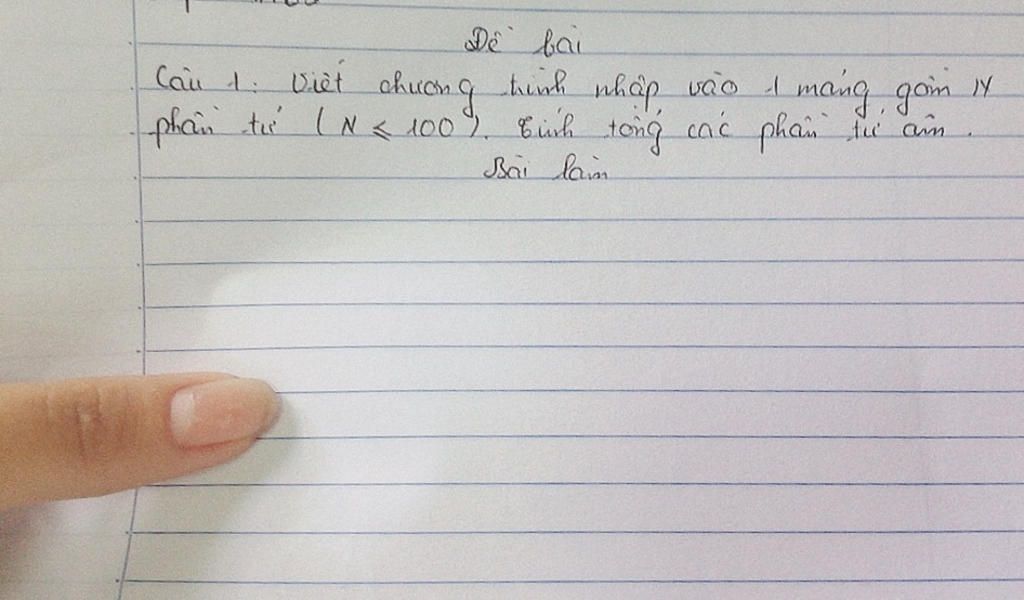 Đề bài
Câu 1: Viết chương trình nhập vào 1 mảng gồm N
phần tử (N ≤ 100). Tính tổng các phần tử âm.
Bài làm